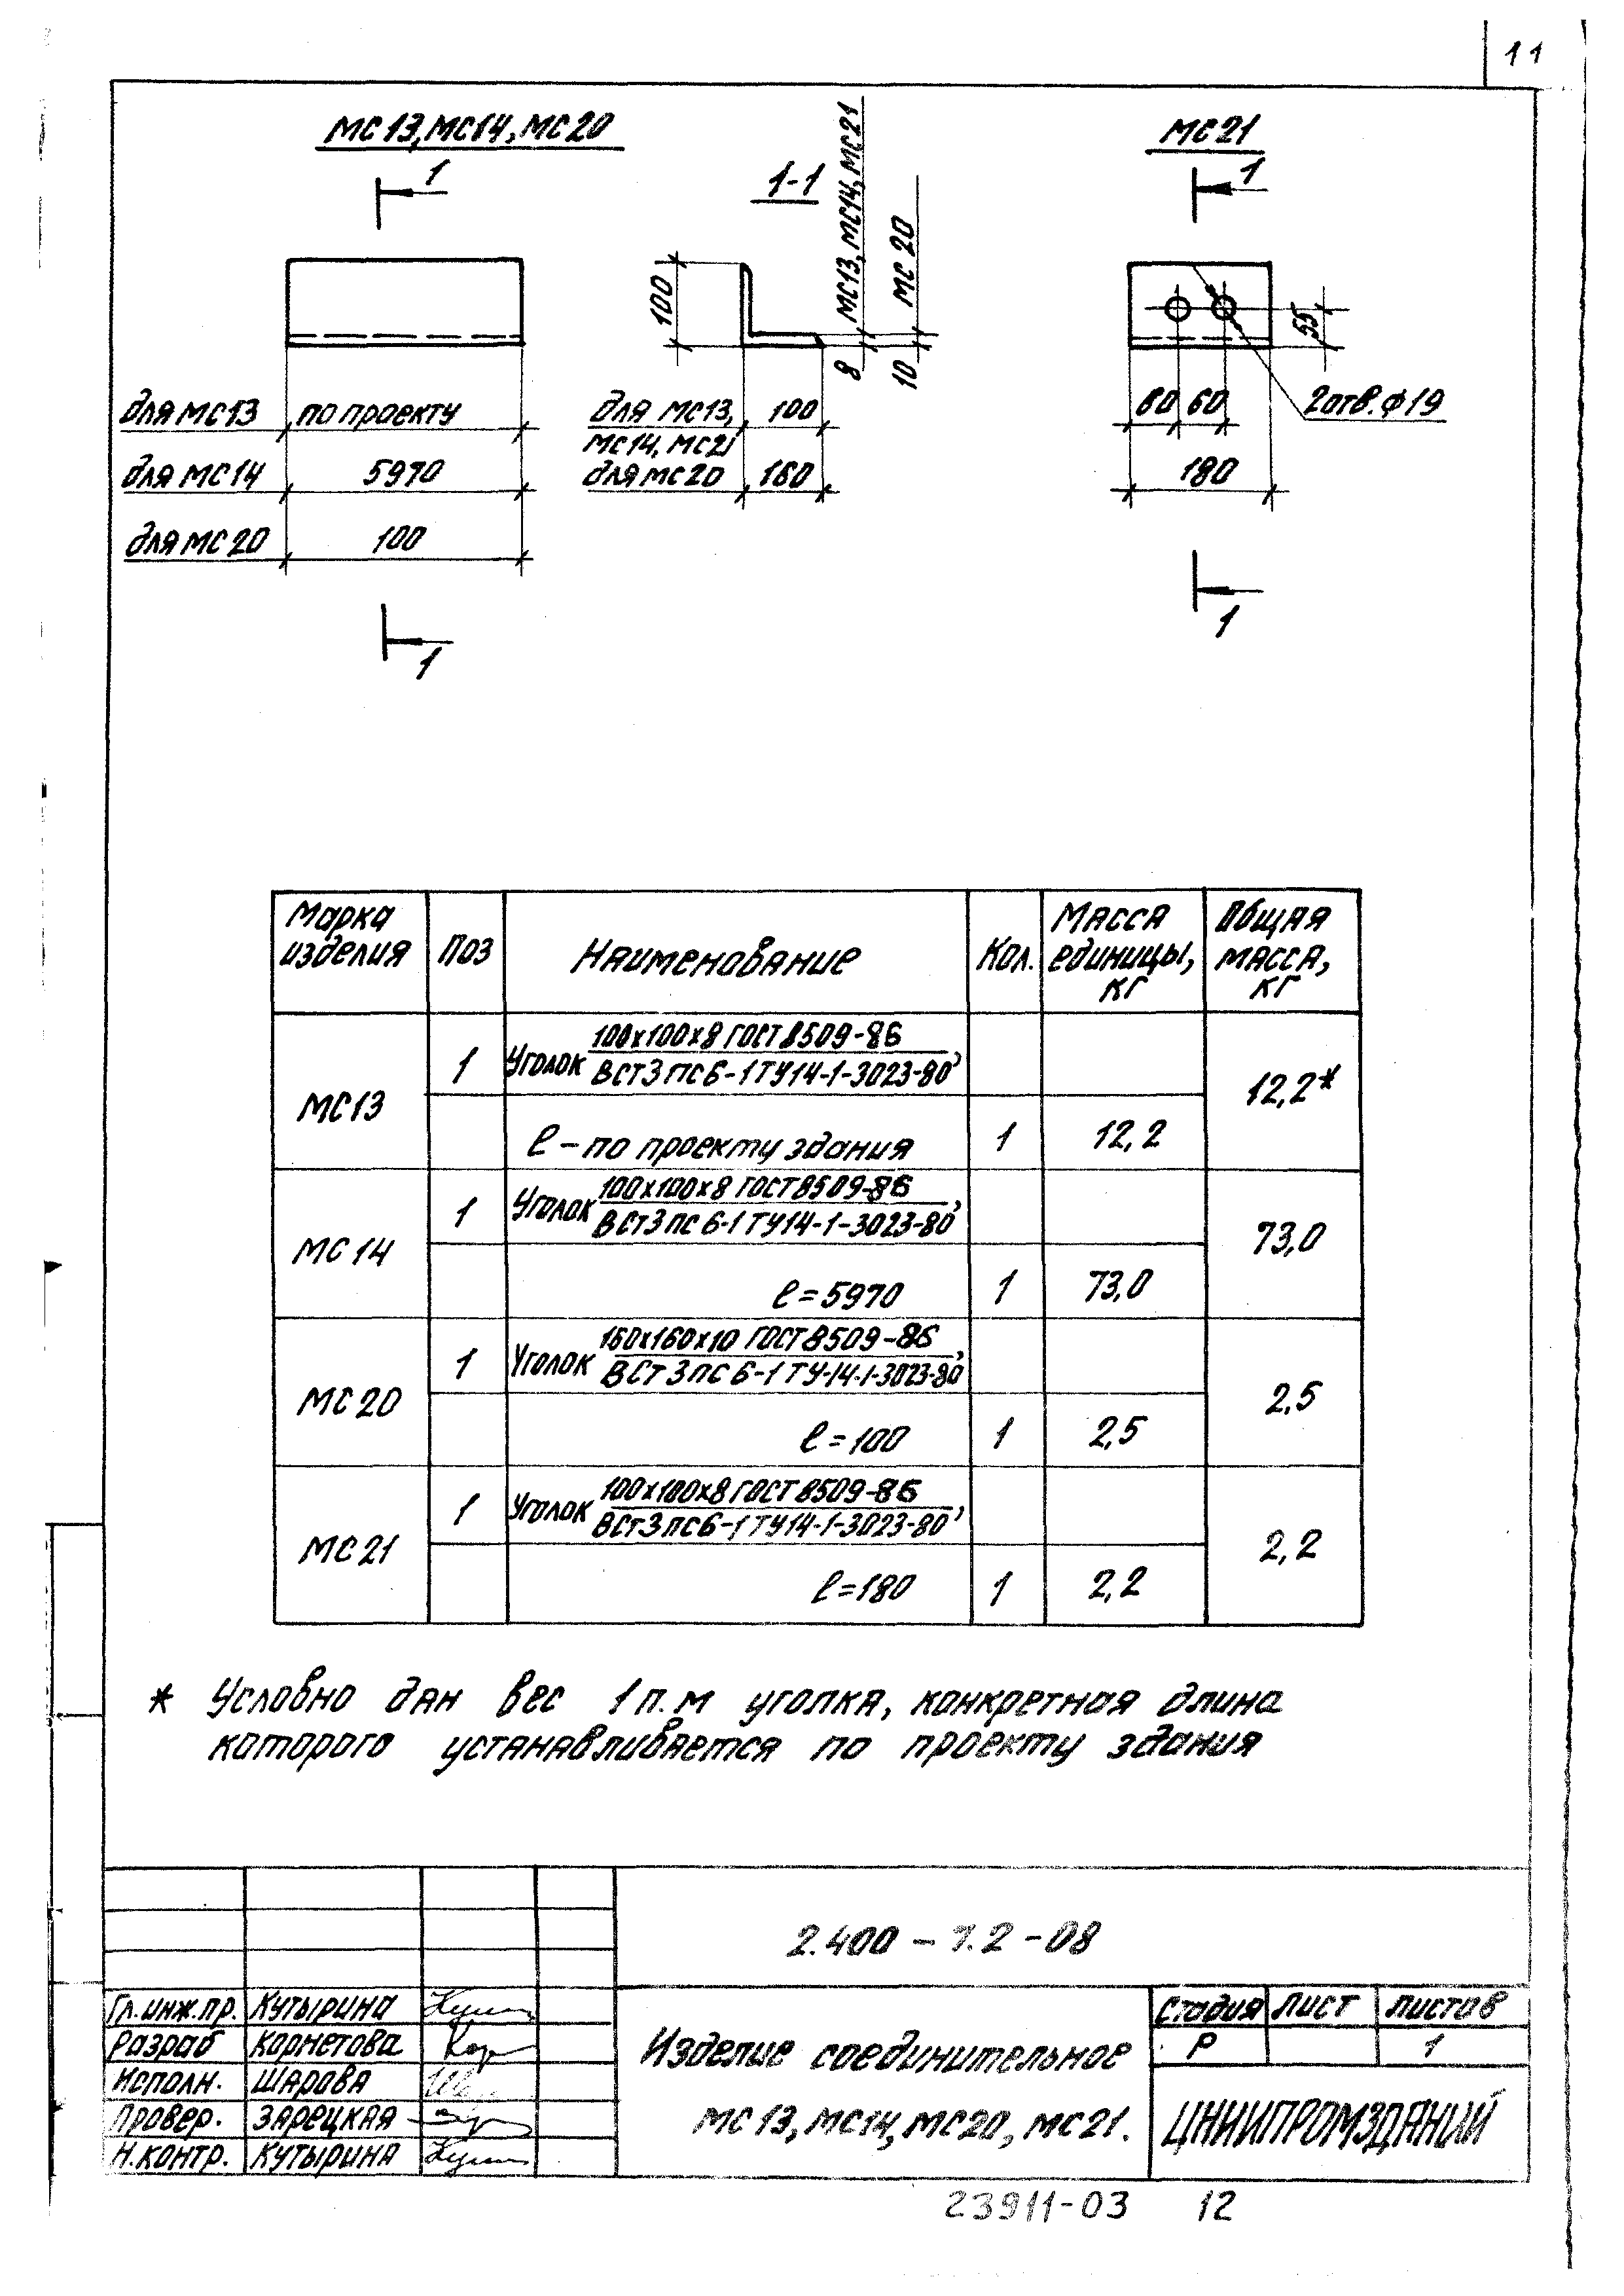 11
МС13, МС14, МС20
1
1-1
МС13, МС14, МС21
МС 20
МС21
1
100
8
10
55
для МС13 по проекту
для МС13, 100
МС14, МС21
60 60
2отв. ф19
для МС14 5970
для МС20 160
180
для МС 20 100
1
1
Марка изделия
Поз
Наименование
Кол.
Масса единицы, кг
Общая масса, кг
МС13
1
Уголок 100х100х8 ГОСТ 8509-86
ВСт3пс6-1 ТУ14-1-3023-80,
12,2*
l – по проекту здания 1 12,2
МС 14
1
Уголок 100х100х8 ГОСТ 8509-86
ВСт3пс6-1 ТУ14-1-3023-80,
73,0
l = 5970 1 73,0
МС 20
1
Уголок 160х160х10 ГОСТ 8509-86
ВСт3пс6-1 ТУ-14-1-3023-80,
2,5
l = 100 1 2,5
МС 21
1
Уголок 100х100х8 ГОСТ 8509-86
ВСт3пс6-1 ТУ14-1-3023-80,
2,2
l = 180 1 2,2
* Условно дан вес 1 п.м уголка, конкретная длина
которого устанавливается по проекту здания
2.400 – 7.2 – 08
Гл.инж.пр. Кутырина
Разраб Корнетова
Исполн. Шарова
Провер. Зарецкая
Н.контр. Кутырина
Изделие соединительное
МС 13, МС14, МС20, МС21.
Стадия Лист Листов
Р 1
ЦНИИПРОМЗДАНИЙ
23911-03 12